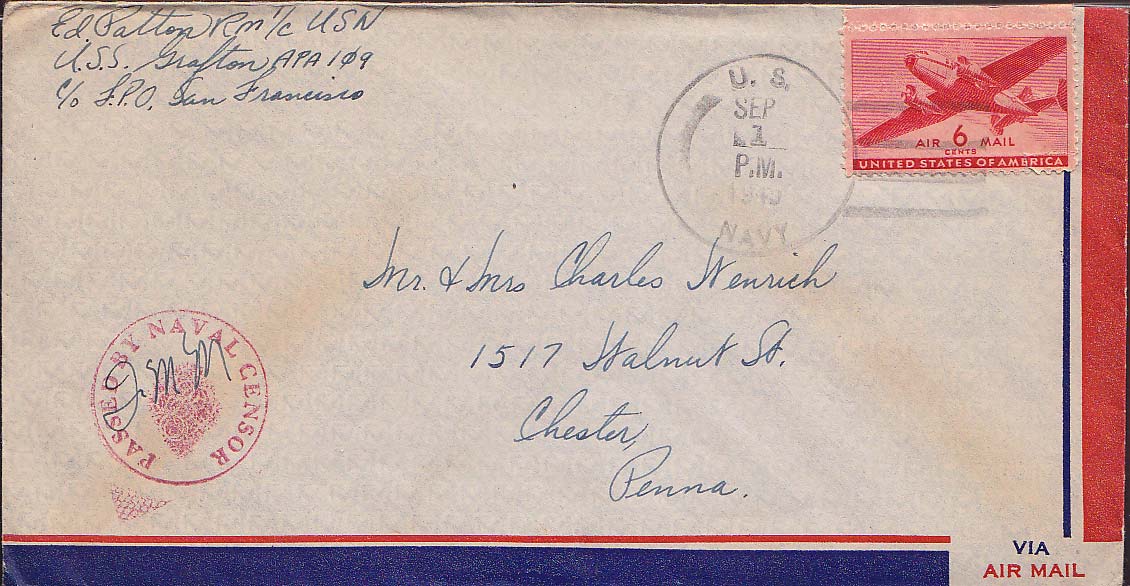 Ed. Patton RM 1/c USN
U.S.S. Grafton APA 109
c/o F.P.O. San Francisco
U. S.
SEP
1
P.M.
NAVY
AIR 6 MAIL
CENTS
UNITED STATES OF AMERICA
Mr. & Mrs Charles Wenrich
1517 Walnut St.
Chester,
Penna.
PASSED BY NAVAL CENSOR
VIA
AIR MAIL